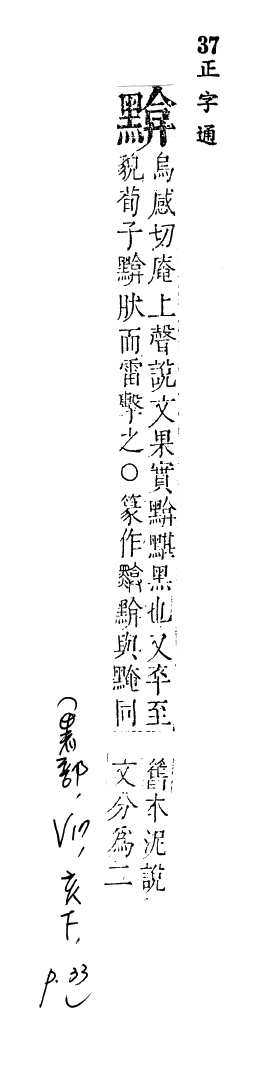 37正字通
黭
烏感切庵上聲說文果實黭黮黑也又卒至
貌荀子黭肰而雷擊之○篆作黭與黤同
舊本泥說
文分爲二
(黑部,
亥下,
p. 33